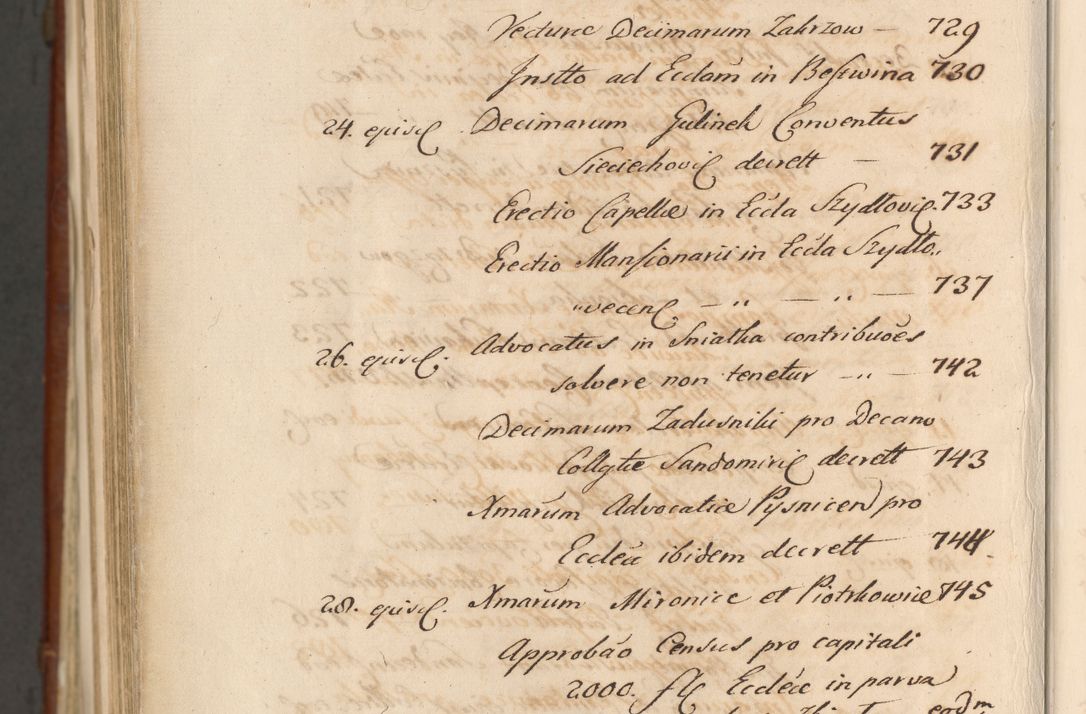 Vecturæ Decimarum Zakrzow — 729
Instto ad Ecclam in Bestwina 730
24. episcl. Decimarum Gulinek Conventus
Sieciechovi decrett — 731
Erectio Capellæ in Eccla Szydlovi. 733
Erectio Mansionarii in Eccla Szydlo„
„vecen — „ — „ — 737
26. episcl. Advocatus in Sniatka contribuoes
solvere non tenetur — „ — 742
Decimarum Zadusniki pro Decano
Collgtæ Sandomiri decrett 743
Xmarum Advocatiæ Pysnicen pro
Eccleæ ibidem decrett 744
28. episcl. Xmarum Mironice et Piotrkowice 745
Approbao Census pro capitali
2000. fl Eccleæ in parva
eodm